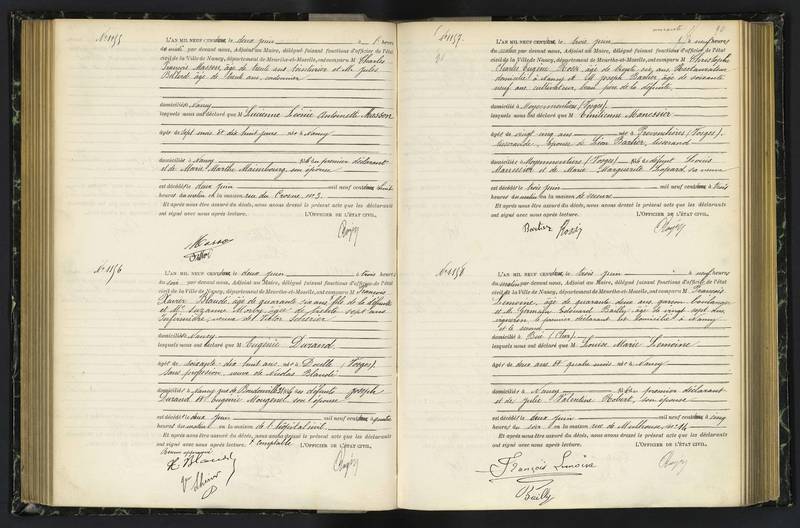 N° 1155
L'AN MIL NEUF CENT le deux juin heures
du midi, par devant nous, Adjoint au Maire, délégué faisant fonctions d'officier de l'état
civil de la Ville de Nancy, département de Meurthe-et-Moselle, ont comparu M Charles
François Masson, âgé de trente et Mr Jules
âgé de trente ans, cordonnier
domiciliés à Nancy
lesquels nous ont déclaré que M Antoinette Masson
âgée de sept mois et dix huit jours née à Nancy
domiciliée à Nancy fille du premier déclarant
et de Marie Marthe Mainbourg son épouse
est décédée le deux juin mil neuf cent à
heures du matin en la maison rue du Crosne n° 3.
Et après nous être assuré du décès, nous avons dressé le présent acte que les déclarants
ont signé avec nous après lecture. L'OFFICIER DE L'ÉTAT CIVIL,
Masson
N° 1156
L'AN MIL NEUF CENT le deux juin à trois heures
du soir par devant nous, Adjoint au Maire, délégué faisant fonctions d'officier de l'état
civil de la Ville de Nancy, département de Meurthe-et-Moselle, ont comparu M François
Xavier Blaudé âgé de quarante six ans fils de la défunte
et Me Suzanne âgée de trente sept ans
infirmière, veuve de Victor
domiciliés à Nancy
lesquels nous ont déclaré que M Eugénie Durand
âgée de soixante dix huit ans née à (Vosges)
sans profession, veuve de Nicolas Blaudé
domiciliée à Nancy fille des défunts Joseph
Durand et Eugénie Mougenel son épouse
est décédée le deux juin mil neuf cent à
heures du matin en la maison de l'hôpital civil
Et après nous être assuré du décès, nous avons dressé le présent acte que les déclarants
ont signé avec nous après lecture. L'OFFICIER DE L'ÉTAT CIVIL,
X Blaudé
N° 1157
L'AN MIL NEUF CENT le trois juin à neuf heures
du matin par devant nous, Adjoint au Maire, délégué faisant fonctions d'officier de l'état
civil de la Ville de Nancy, département de Meurthe-et-Moselle, ont comparu M Christophe
Charles Eugène âgé de trente six ans, Restaurateur
domicilié à Nancy et M Joseph Bartier, âgé de soixante
neuf ans cultivateur, beau père de la défunte
domicilié à Moyenmoutier (Vosges)
lesquels nous ont déclaré que M Emilienne Manessier
âgée de vingt cinq ans née à Provenchères (Vosges)
tisserande, épouse de Léon Bartier, tisserand
domiciliée à Moyenmoutier (Vosges) fille de défunt
Manessier et de Marie Marguerite sa veuve
est décédée le trois juin mil neuf cent à trois
heures du matin en la maison de secours
Et après nous être assuré du décès, nous avons dressé le présent acte que les déclarants
ont signé avec nous après lecture. L'OFFICIER DE L'ÉTAT CIVIL,
Bartier
N° 1158
L'AN MIL NEUF CENT le trois juin à neuf heures
du matin par devant nous, Adjoint au Maire, délégué faisant fonctions d'officier de l'état
civil de la Ville de Nancy, département de Meurthe-et-Moselle, ont comparu M François
Lemoine, âgé de quarante deux ans, garçon boulanger
et M Germain Edouard Bailly, âgé de vingt sept ans
le premier déclarant est domicilié à Nancy
et le second
domicilié à Bué (Cher)
lesquels nous ont déclaré que M Louise Marie Lemoine
âgée de deux ans et quatre mois née à Nancy
domiciliée à Nancy fille du premier déclarant
et de Julie Valentine Robert, son épouse
est décédée le deux juin mil neuf cent à cinq
heures du soir en la maison rue de Mulhouse, n° 14
Et après nous être assuré du décès, nous avons dressé le présent acte que les déclarants
ont signé avec nous après lecture. L'OFFICIER DE L'ÉTAT CIVIL,
François Lemoine
Bailly